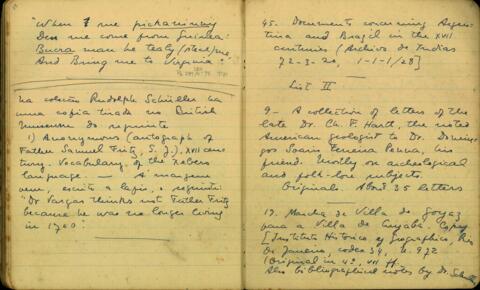 "When I me pickaninny
Den me come from Guinea:
Bucra man he tealy (steal) me
And Bring me to Virginia".
Na coleção Rudolph Schüller ha
uma copia tirada no British
Museum do seguinte
1) Anonymous (autograph of
Father Samuel Fritz, S. J.), XVII cen
tury. Vocabulary of the Xebero
language. — Á margem
vem, escrito a lapis, o seguinte:
"Dr Vargas thinks not Father Fritz
because he was no longer living
in 1750."
45. Documents concerning Argen
tina and Brazil in the XVII
centuries (Archivo de Indias
72-3-20, 1-1-1/28]
List II
9 - A collection of letters of the
late Dr. Ch. F. Hartt, the noted
American geologist to Dr. Domin
gos Soares Ferreira Penna, his
friend. Mostly on archeological
and folk-lore subjects.
Originals. About 35 letters
17. Marcha de Villa de Goyaz
para a Villa de Cuyabá. Copy
[Instituto Historico e Geographico, Rio
de Janeiro, codex 34, n. 972
(Original in 4º, VII ff.
Also bibliographical notes by Dr.